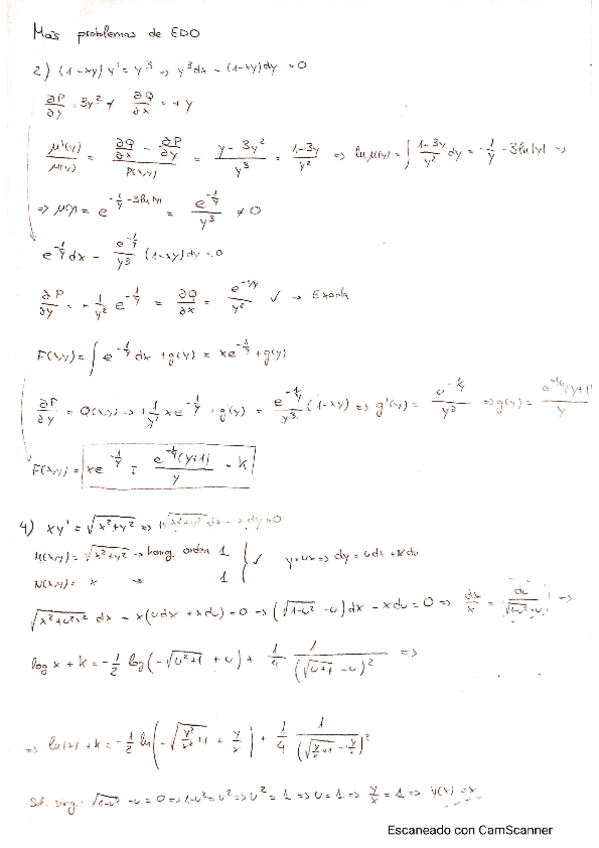 Más problemas de EDO
2) (1-xy) y' = y³ => y³dx - (1-xy)dy = 0
∂P/∂y = 3y² ≠ ∂Q/∂x = +y
μ'(y)/μ(y) = (∂Q/∂x - ∂P/∂y)/P(x,y) = (y - 3y²)/y³ = (1-3y)/y² => ln μ(y) = ∫ (1-3y)/y² dy = -1/y - 3ln|y| =>
=> μ(y) = e^(-1/y - 3ln|y|) = e^(-1/y)/y³ ≠ 0
e^(-1/y) dx - e^(-1/y)/y³ (1-xy)dy = 0
∂P/∂y = + 1/y² e^(-1/y) = ∂Q/∂x = e^(-1/y)/y² ✓ → Exacta
F(x,y) = ∫ e^(-1/y) dx + g(y) = xe^(-1/y) + g(y)
∂F/∂y = Q(x,y) → + 1/y² xe^(-1/y) + g'(y) = e^(-1/y)/y³ (1-xy) => g'(y) = e^(-1/y)/y³ => g(y) = e^(-1/y)(y+1)/y
F(x,y) = xe^(-1/y) e^(-1/y)(y+1)/y = K
4) xy' = √(x²+y²) => √(x²+y²) dx - xdy = 0
M(x,y) = √(x²+y²) → homg. orden 1
N(x,y) = x → 1 } ✓ y = ux => dy = udx + xdu
√(x²+u²x²) dx - x(udx + xdu) = 0 => (√(1-u²) - u) dx - xdu = 0 => dx/x = du/(√(1-u²) - u) =>
log x + k = -1/2 log(-√(u²+1) + u) + 1/4 1/(√(u+1) - u)² =>
=> ln|x| + k = -1/2 ln(-√(y²/x²+1) + y/x) + 1/4 1/(√(y/x+1) - y/x)²
Sol. sing.: √(1-u²) - u = 0 => 1-u² = u² => u² = 1 => u = 1 => y/x = 1 => y(x) = x
Escaneado con CamScanner